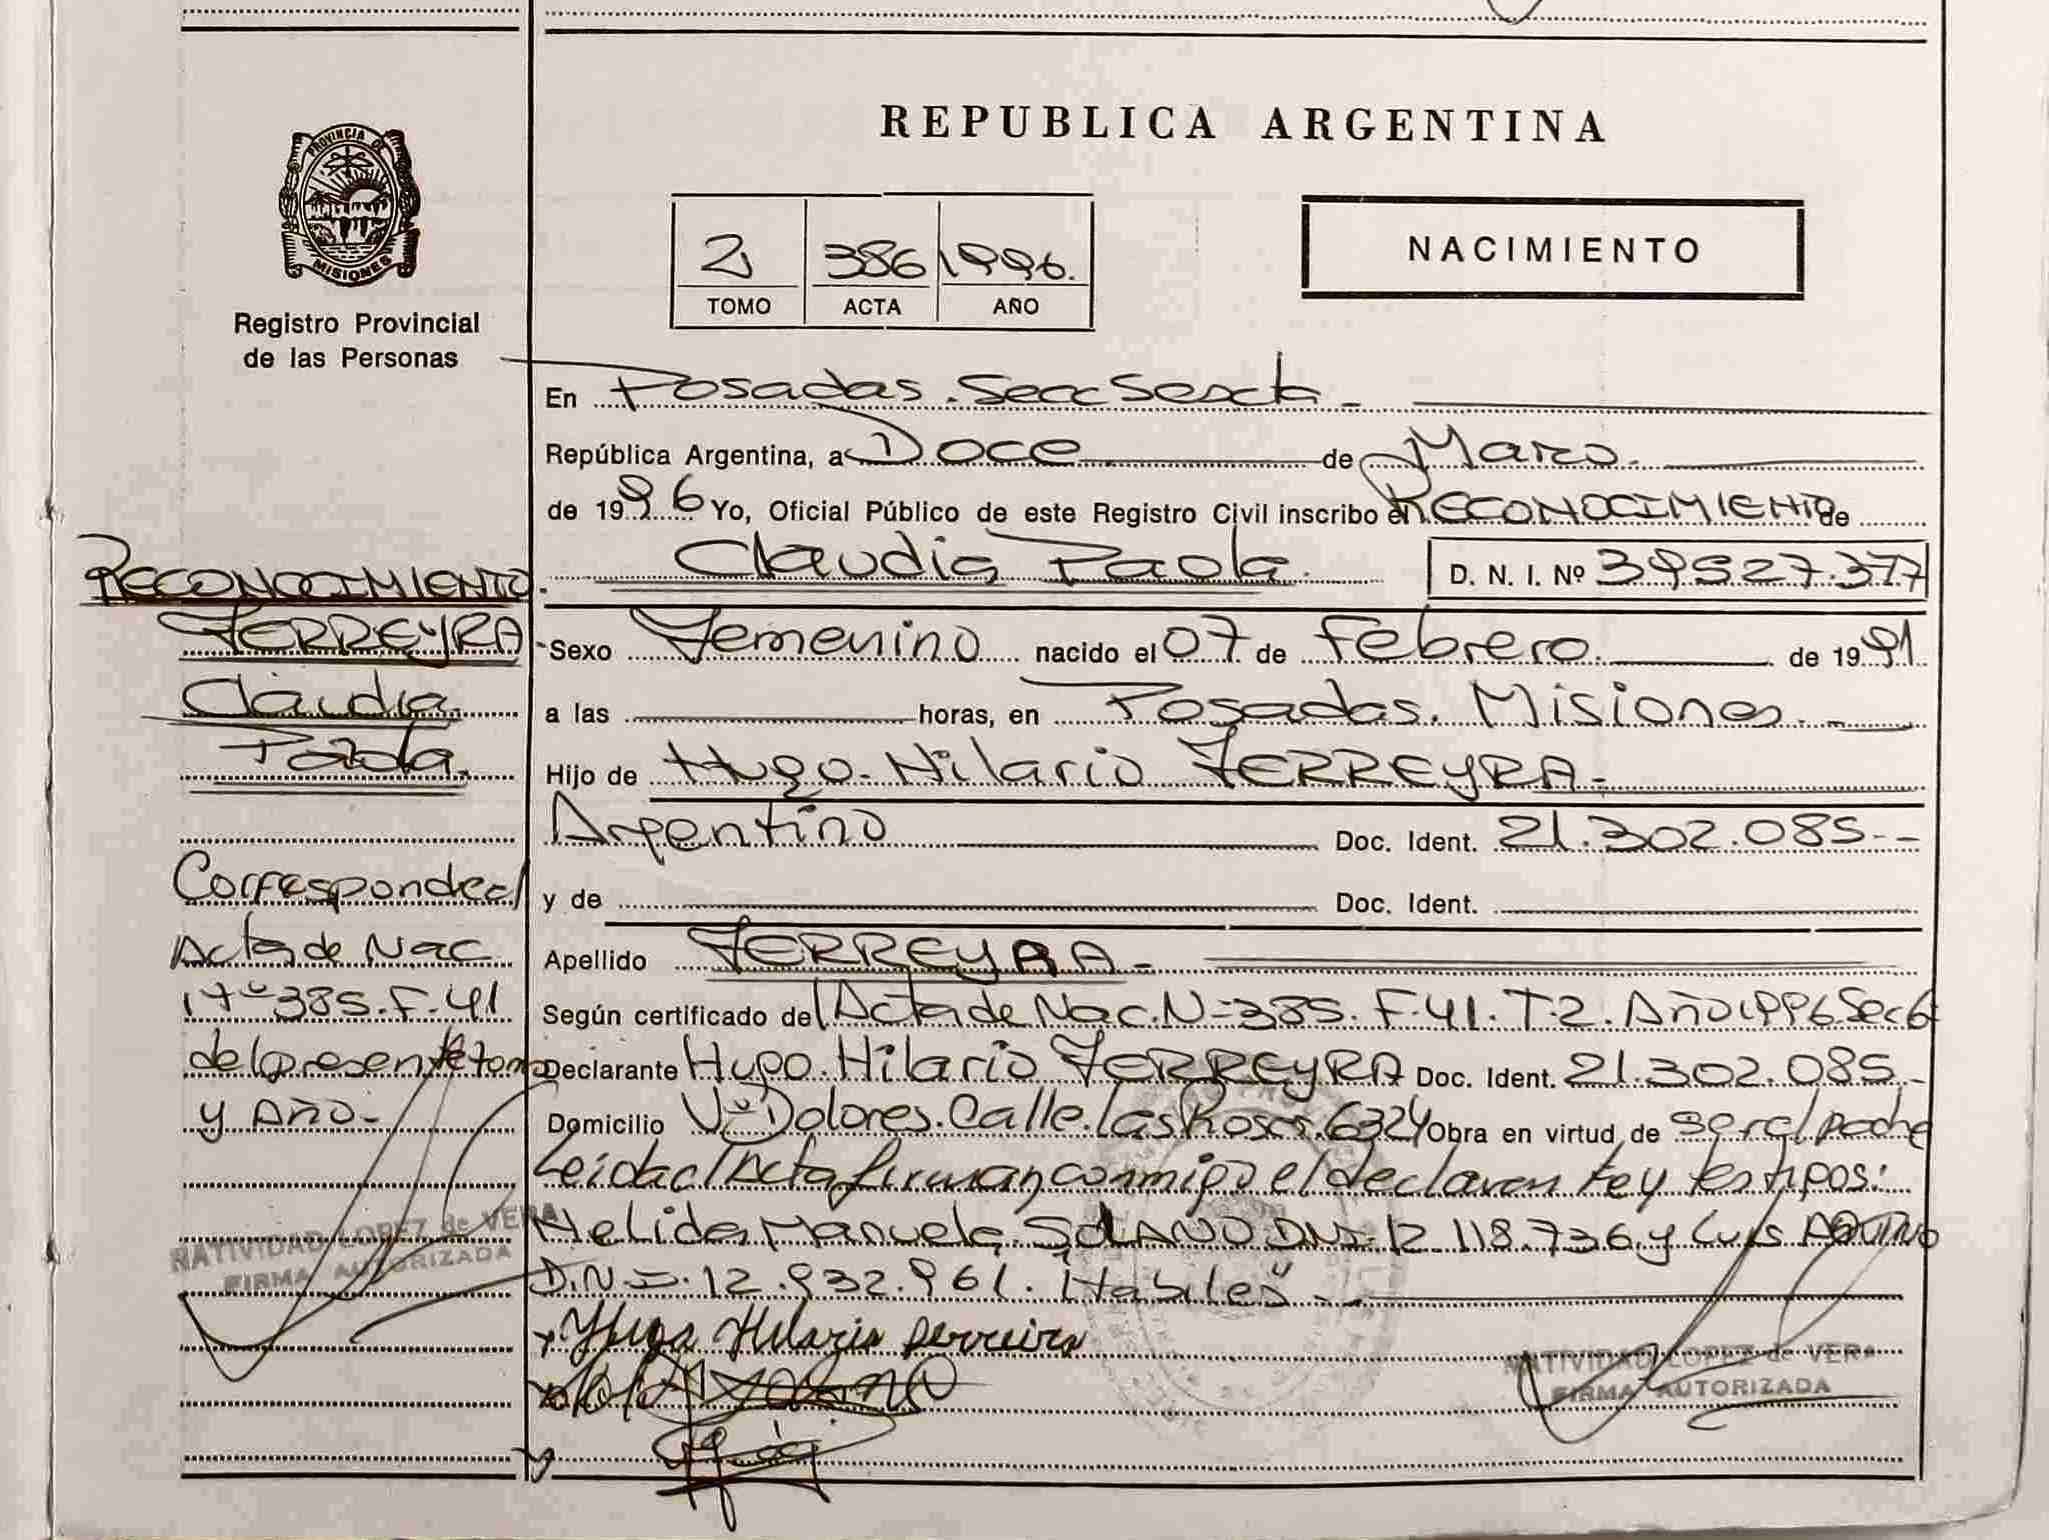 REPUBLICA ARGENTINA
PROVINCIA DE
MISIONES
Registro Provincial
de las Personas
2 386 1996.
TOMO ACTA AÑO
NACIMIENTO
En Posadas. Secc Sexta
República Argentina, a Doce de Marzo.
de 1996 Yo, Oficial Público de este Registro Civil inscribo el RECONOCIMIENTO de
Claudia Paola. D. N. I. Nº 39527.377
Sexo Femenino nacido el 07 de Febrero. de 1991
a las horas, en Posadas. Misiones.
Hijo de Hugo Hilario FERREYRA-
Argentino Doc. Ident. 21.302.085--
y de Doc. Ident.
Apellido FERREYRA-
Según certificado del Acta de Nac. Nº 385. F. 41. T. 2. Año 1996 Sec 6
Declarante Hugo Hilario FERREYRA Doc. Ident. 21.302.085-
Domicilio Vª Dolores. Calle. Las Rosas. 6324 Obra en virtud de ser el padre
Leida el Acta firman conmigo el declarante y testigos:
Nelida Manuela SOLANO DNI- 12.118.736 y Luis AQUINO
D.N.I. 12.932.961. Habiles
Hugo Hilario Ferreira
NATIVIDAD LOPEZ de VERA
FIRMA AUTORIZADA
RECONOCIMIENTO
FERREYRA
Claudia
Paola.
Corresponde al
Acta de Nac
Nº 385. F. 41
del presente tomo
y Año-
NATIVIDAD LOPEZ de VERA
FIRMA AUTORIZADA